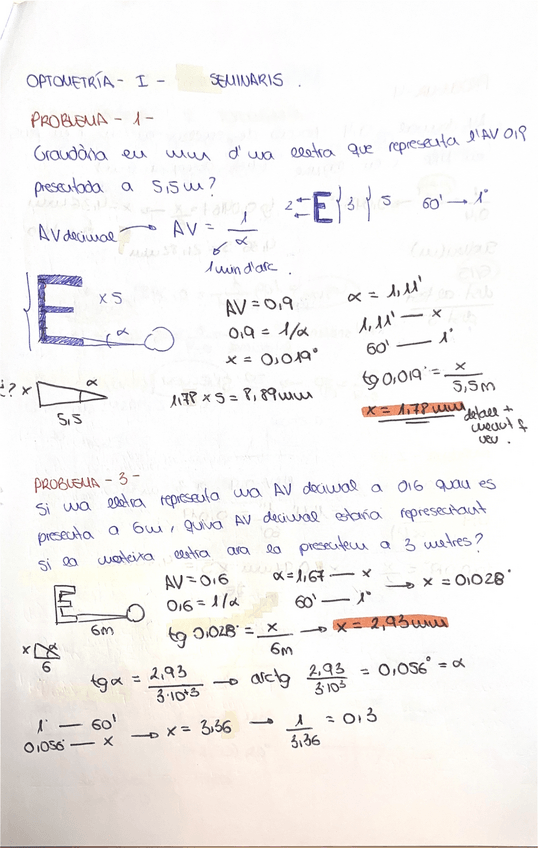 OPTOMETRÍA - I - SEMINARIS.
PROBLEMA - 1 -
Grandària en mm d'una lletra que representa l'AV 0,9
presentada a 5,5m?
2 E } 3 } 5 60' → 1°
AV decimal → AV = 1/α
1 min d'arc.
E x 5 α
AV = 0,9
0,9 = 1/α
x = 0,019°
α = 1,11'
1,11' — x
60' — 1°
tg 0,019° = x / 5,5m
¿? x α
5,5
1,78 x 5 = 8,89mm
x = 1,78 mm detall +
menut q
veu.
PROBLEMA - 3 -
Si una lletra representa una AV decimal a 0,6 quan es
presenta a 6m, quina AV decimal estaria representant
si la mateixa lletra ara la presentem a 3 metres?
E 6m
AV = 0,6
0,6 = 1/α
α = 1,67 — x → x = 0,028°
60' — 1°
tg 0,028° = x / 6m → x = 2,93mm
x α
6
tg α = 2,93 / 3·10⁺³ → arctg 2,93 / 3·10³ = 0,056° = α
1° — 60'
0,056° — x → x = 3,36 → 1 / 3,36 = 0,3